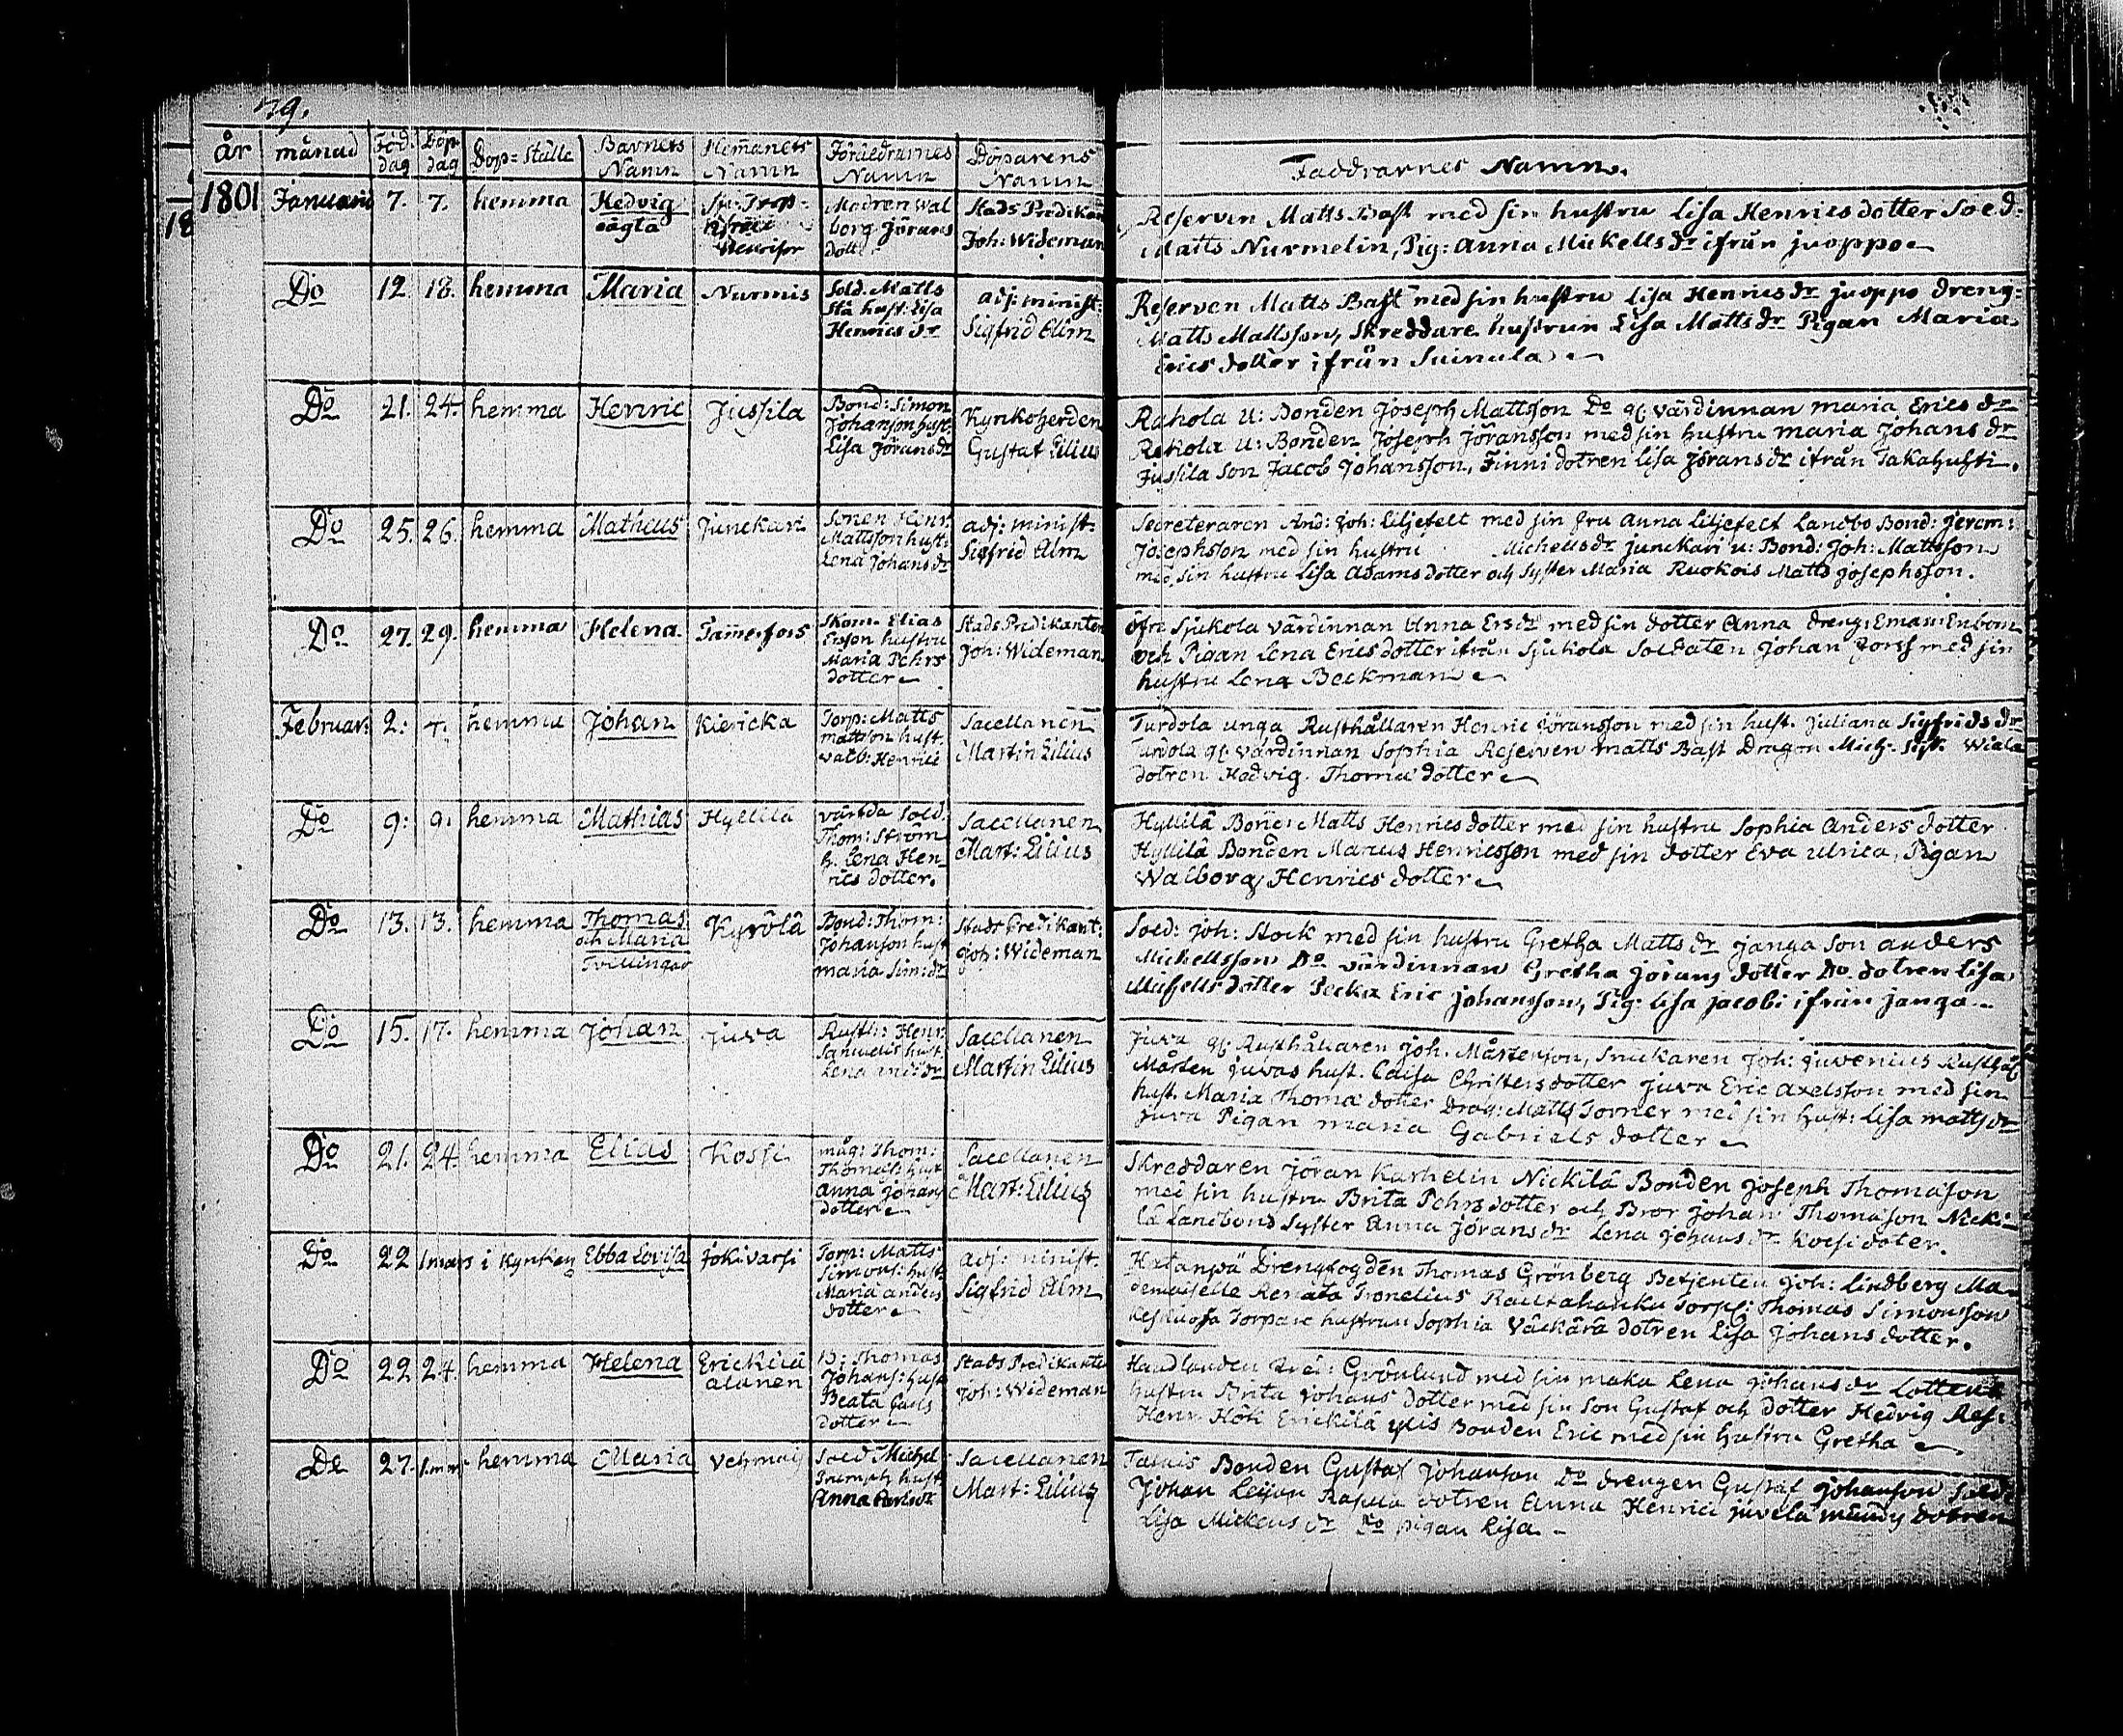 79.
år månad Föd. dag Döp dag Dop=Ställe Barnets Namn Hemanets Namn Föräldrarnes Namn Döparens Namn
Faddrarnes Namn.
1801 Januarii 7. 7. hemma Hedvig oägta
Modren Wal
borg Jörans
dott.
Stads Predikan
Joh: Wideman
Reserven Matts Bast med sin hustru Lisa Henricsdotter Sold:
Matts Nurmelin, Pig: Anna Mickells dr ifrån juoppo
Do 12. 18. hemma Maria Nurmis
Sold. Matts
Stå hust: Lisa
Henrics dr
adj: minist:
Sigfrid Alm
Reserven Matts Bast med sin hustru Lisa Henrics dr juoppo dreng:
Matts Mattsson, Skreddare hustrun Lisa Matts dr Pigan Maria
Erics dotter ifrån Suinula
Do 21. 24. hemma Henric Jussila
Bond: Simon
Johanson hust.
Lisa Jörans dr
Kyrkoherden
Gustaf Lilius
Rahola U: Bonden Joseph Mattsson Do gl. värdinnan maria Erics dr
Rahola U: Bonden Joseph Jöransson med sin hustru maria Johans dr
Jussila Son Jacob Johansson, Finni dotren Lisa Jörans dr ifrån Takahuhti.
Do 25. 26. hemma Matheus Junckari
Sonen Henr.
Mattsson hust:
Lena Johans dr
adj: minist:
Sigfrid Alm
Secreteraren And: Joh: Liljefelt med sin fru Anna Liljefelt Landbo Bond: Jerem:
Josephsson med sin hustru Michels dr junckari u: Bond: Joh: Mattsson
med sin hustru Lisa Adams dotter och Syster Maria Ruokois Matts Josephsson.
Do 27. 29. hemma Helena Tamerfors
Skom. Elias
Ersson hustru
Maria Pehrs
dotter
Stads Predikanten
Joh: Wideman
öfre Sjukola värdinnan Anna Ers dr med sin dotter Anna dreng: Eman: Enbom
och Pigan Lena Erics dotter ifrån Sjukola Soldaten Johan Forss med sin
hustru Lena Beckman
Februar: 2: 4. hemma Johan Kiericka
Torp: Matts
mattson hust
Valb: Henrici
Sacellanen
Martin Lilius
Turdola unga Rusthållaren Henric Jöransson med sin hust. Juliana Sigfrids dr
Turdola gl. värdinnan Sophia Reserven matts Bast Dragon Mich: Wiala
dotren Hedvig Thomæ dotter
Do 9: 9. hemma Mathias Hyllilä
Sold.
Thom: Ström
h. Lena Hen
rics dotter.
Sacellanen
Mart: Lilius
Hyllilä Bonden Matts Henricsdotter med sin hustru Sophia Anders dotter
Hyllilä Bonden Marcus Henricsson med sin dotter Eva Ulrica, Pigan
Walborg Henrics dotter
Do 13. 13. hemma Thomas och Maria Tvillingar Kyrölä
Bond: Thom:
Johanson hust
maria Sim: dr
Stads Predikant:
Joh: Wideman
Sold: Joh: Stock med sin hustru Gretha Matts dr janga Son anders
Mickellsson Do värdinnan Gretha Jörans dotter Do dotren Lisa
Michells dotter Pecka Eric Johansson, Pig: Lisa Jacobi ifrån janga
Do 15. 17. hemma Johan Juva
Rusth: Henr:
hust
Lena
Sacellanen
Martin Lilius
Juva gl. Rusthållaren Joh. Mårtenson, Snickaren Joh: Juvenius Rusthål
Mårten Juvas hust. Caisa Christers dotter Juva Eric Axelsson med sin
hust. Maria Thomæ dotter Drag: Matts Torner med sin hust: Lisa matts dr
Juva Pigan maria Gabriels dotter
Do 21. 24. hemma Elias Kossi
måg: Thom:
Thomas: hust
Anna Johans
dotter
Sacellanen
Mart: Lilius
Skreddaren Jöran Karhelin Nickilä Bonden Joseph Thomason
med sin hustru Brita Pehrs dotter och Bror Johan Thomason Nicki
lä Landbond Syster Anna Jörans dr Lena Johans dr Kossi doter.
Do 22 1 mars i Kyrkan Ebba Lovisa Jokivarsi
Torp: Matts
Simons: hust
Maria anders
dotter
adj: minist.
Sigfrid Alm
Hatanpä Drengfogden Thomas Grönberg Betjenten Joh: Lindberg Ma
demoiselle Renata Tronelius Rautahanku Torp: Thomas Simonsson
Torpare hustrun Sophia Väckärä dotren Lisa Johans dotter.
Do 22 24. hemma Helena Erickilä alanen
B: Thomas
Johans: hust
Beata
dotter
Stads Predikante
Joh: Wideman
Handlanden Grönlund med sin maka Lena Johans dr
hustru Brita Johans dotter med sin Son Gustaf och dotter Hedvig Res:
Henr. Hök Erickilä ylis Bonden Eric med sin hustru Gretha
Do 27. 1. mars hemma Maria Vehmaij
Sold Michel
Triumph hust
Anna
Sacellanen
Mart: Lilius
Talais Bonden Gustaf Johanson Do drengen Gustaf Johanson Sold:
Johan Leijon Rapula dotren Anna Henrici juvela dotren
Lisa Mickels dr Do pigan Lisa